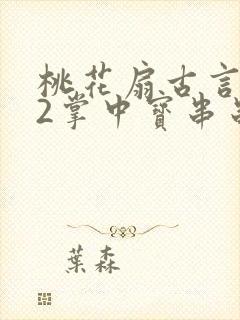 桃花扇古言
2掌中寶串
葉森